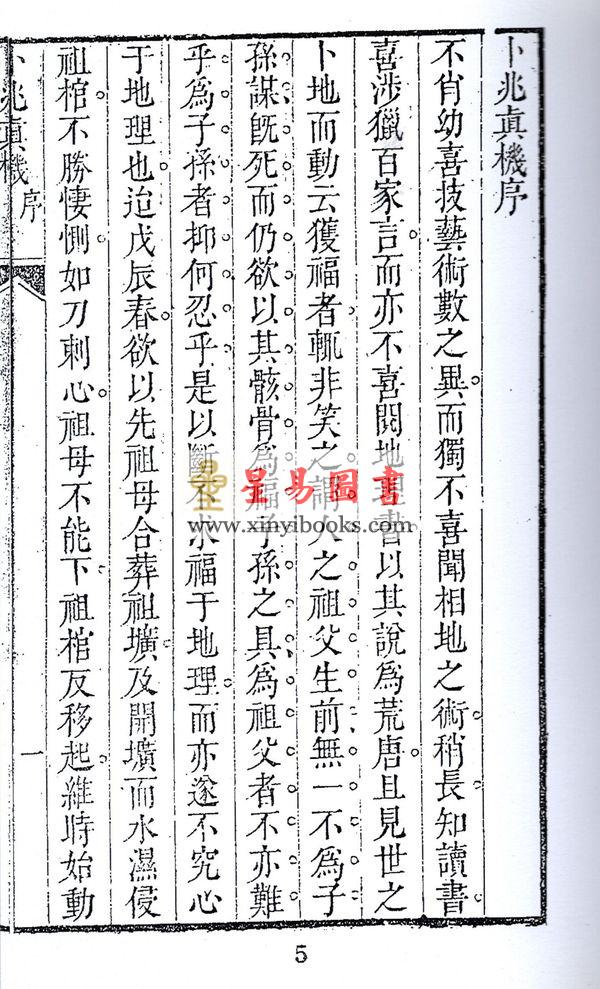 卜兆眞機序
不肖幼喜技藝術數之異而獨不喜聞相地之術稍長知讀書
喜涉獵百家言而亦不喜閱地理書以其說為荒唐且見世之
卜地而動云獲福者輒非笑之謂人之祖父生前無一不為子
孫謀旣死而仍欲以其骸骨為福子孫之具為祖父者不亦難
乎為子孫者抑何忍乎是以斷不求福于地理而亦遂不究心
于地理也迨戊辰春欲以先祖母合葬祖壙及開壙而水濕侵
祖棺不勝悽惻如刀刺心祖母不能下祖棺反移起維時始動
卜兆眞機 序
一
星易圖書
www.xinyibooks.com
5